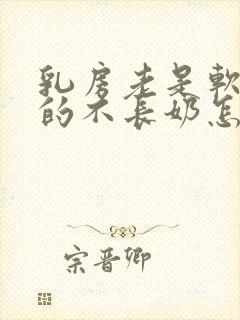 乳房老是软
的不长奶怎
宗晋卿